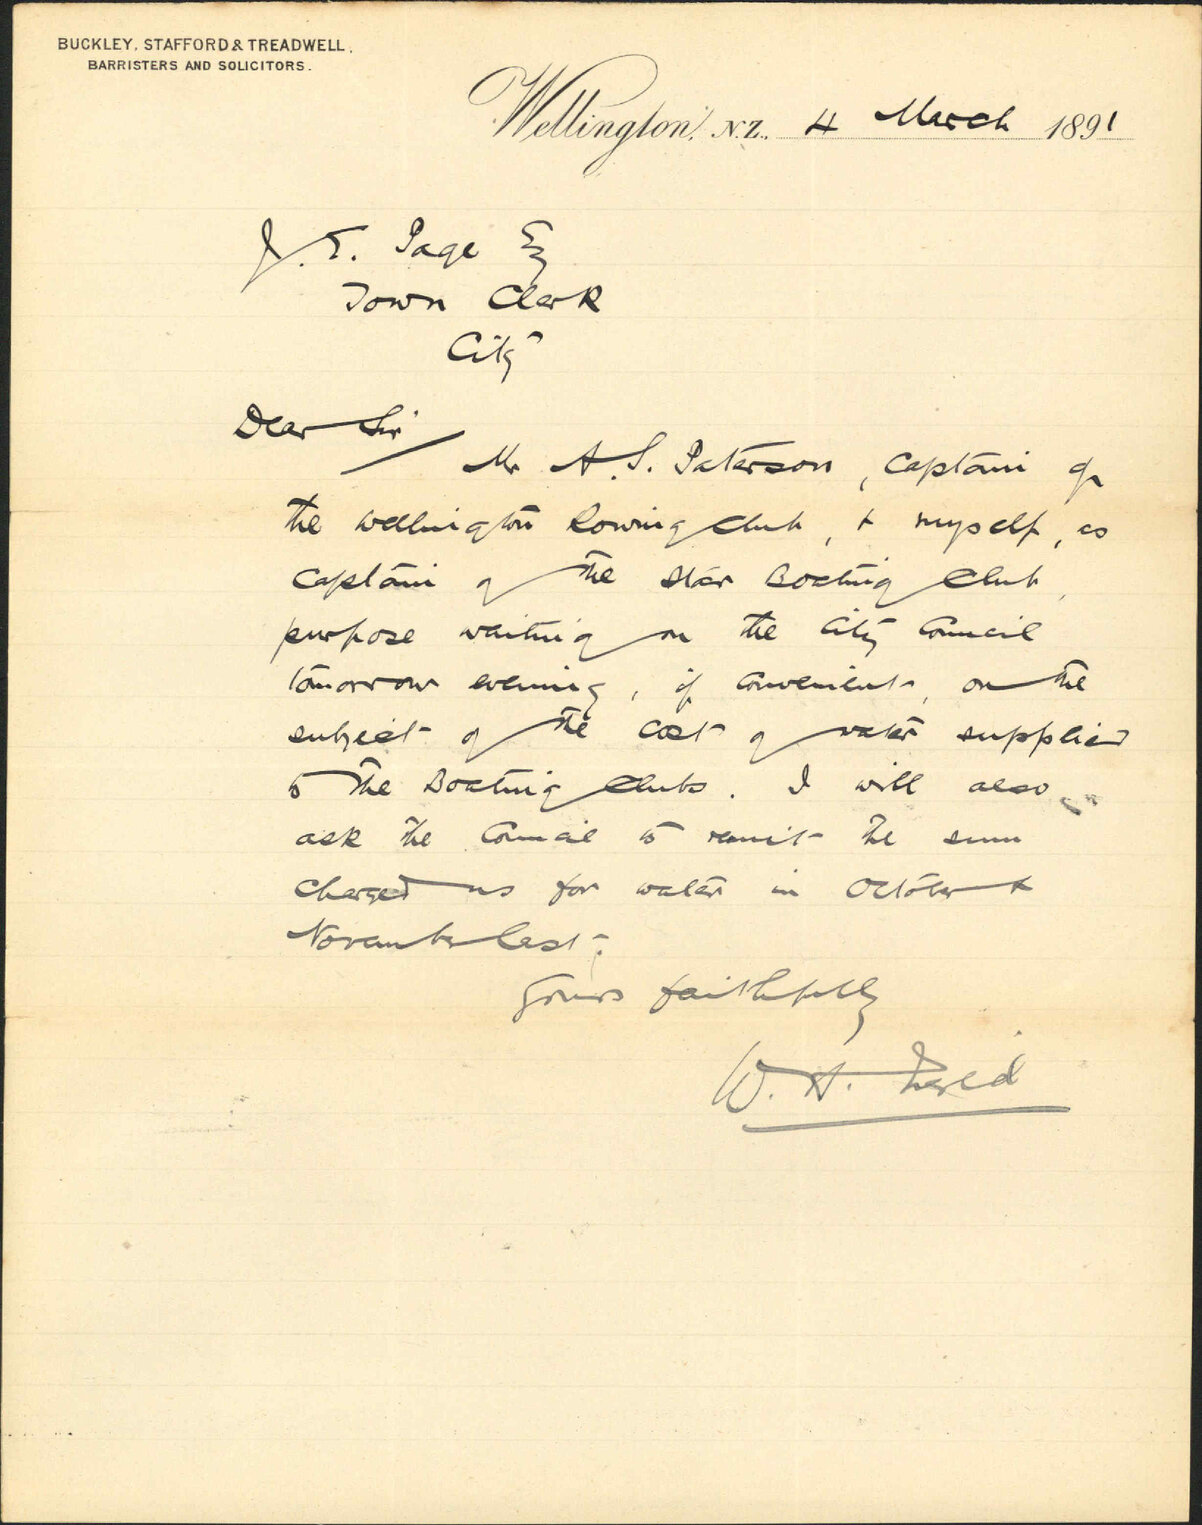 BUCKLEY, STAFFORD & TREADWELL,
BARRISTERS AND SOLICITORS.
Wellington, N.Z., 4 March 1891
J. E. Page Esq
Town Clerk
City
Dear Sir
Mr A. S. Paterson, Captain of
the Wellington Rowing Club, & myself, as
Captain of the Star Boating Club,
purpose waiting on the City Council
tomorrow evening, if convenient, on the
subject of the cost of water supplied
to the Boating Clubs. I will also
ask the Council to remit the sum
charged us for water in October &
November last.
Yours faithfully
W. H. Field